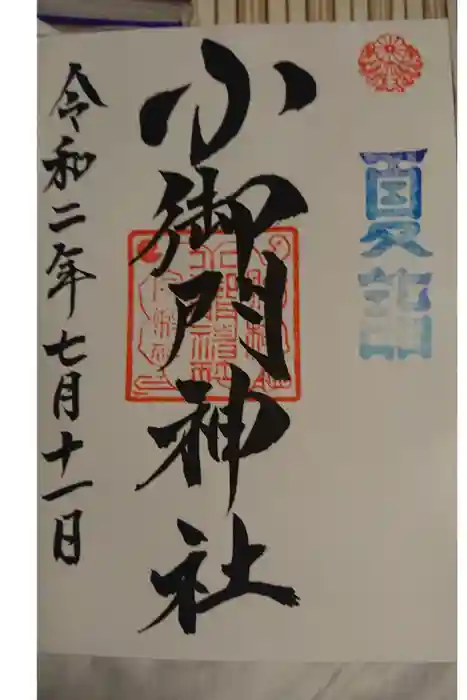 夏詣
小御門神社
令和二年七月十一日